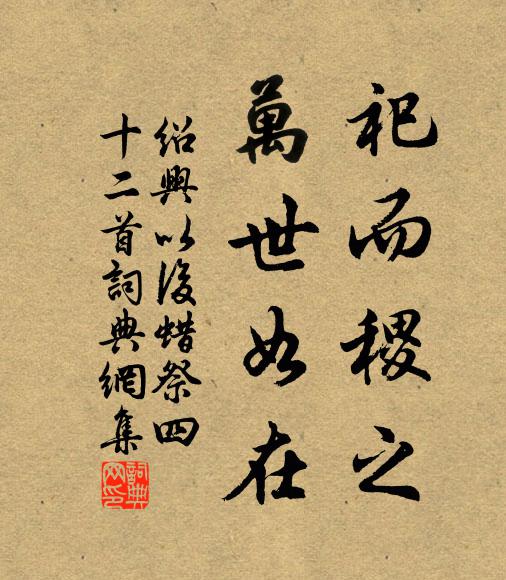 祀而稷之
萬世如在
紹興以後蜡祭四
十二首詞典網集
詞典
网印